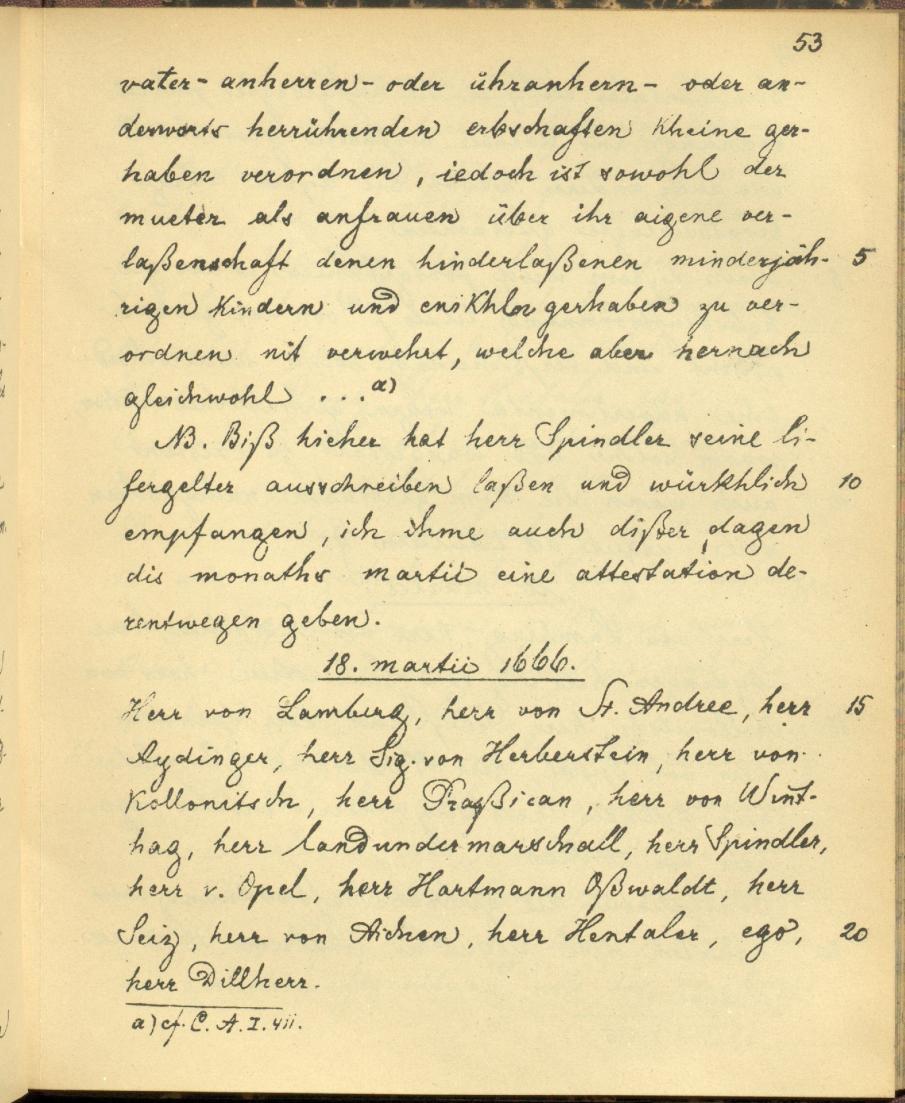 53
vater- anherren- oder ühranhern- oder an-
derworts herrührenden erbschaften kheine ger-
haben verordnen, iedoch ist sowohl der
mueter als anfrauen über ihr aigene ver-
laßenschaft denen hinderlaßenen minderjäh- 5
rigen kindern und enikhln gerhaben zu ver-
ordnen nit verwehrt, welche aber hernach
gleichwohl ...a)
NB. Biß hieher hat herr Spindler seine li-
fergelter ausschreiben laßen und würkhlich 10
empfangen, ich ihme auch dißer dagen
dis monaths martii eine attestation de-
rentwegen geben.
18. martii 1666.
Herr von Lamberg, herr von St. Andree, herr 15
Aydinger, herr Sig. von Herberstein, herr von
Kollonitsch, herr Praßican, herr von Wint-
hag, herr landundermarschall, herr Spindler,
herr v. Opel, herr Hartmann Oßwaldt, herr
Seiz, herr von Aichen, herr Hentaler, ego, 20
herr Dillherr.
a) cf. C. A. I. 411.